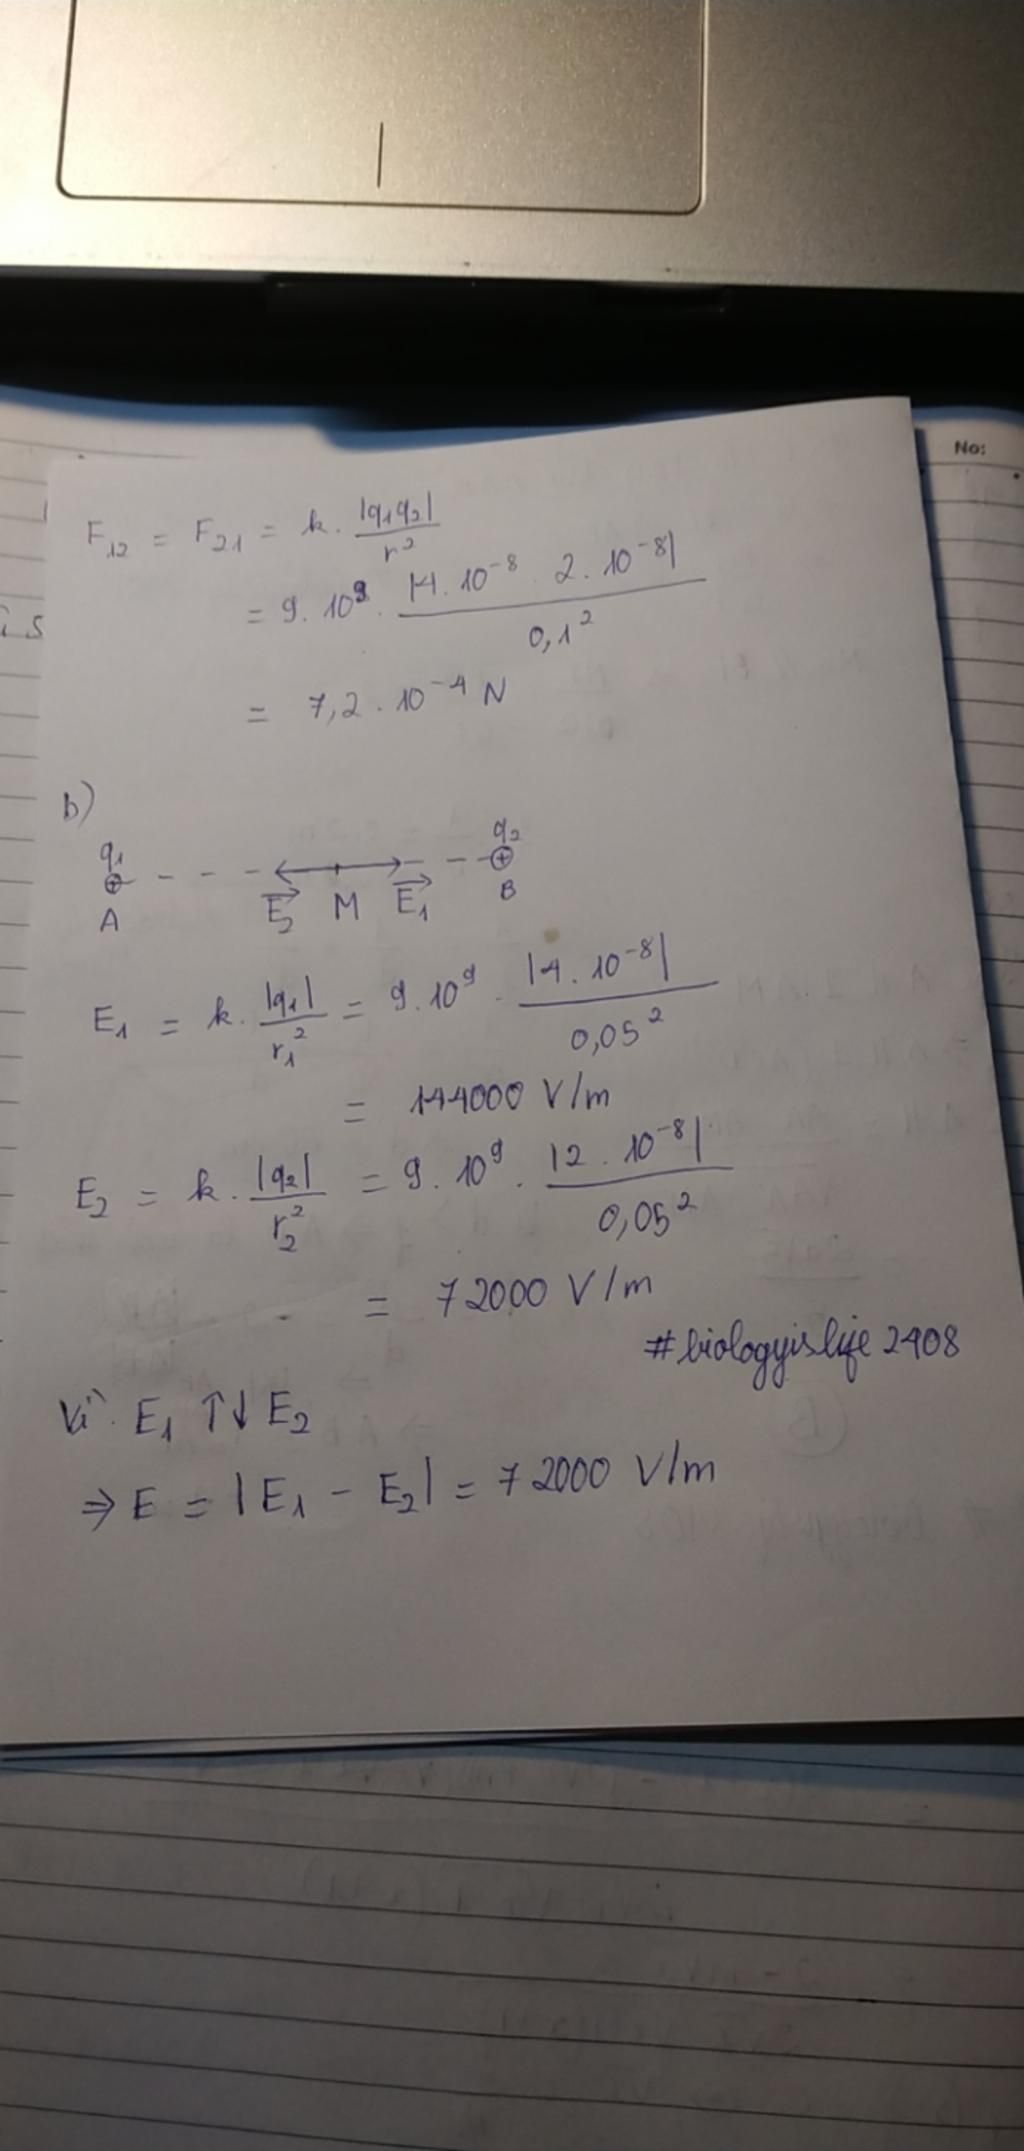 No:
F₁₂ = F₂₁ = k. |q₁q₂| / r²
= 9. 10⁹. |4. 10⁻⁸. 2. 10⁻⁸| / 0,1²
= 7,2. 10⁻⁴ N
b)
q₁ q₂
A E₂ M E₁ B
E₁ = k. |q₁| / r₁² = 9. 10⁹. |4. 10⁻⁸| / 0,05²
= 144000 V/m
E₂ = k. |q₂| / r₂² = 9. 10⁹. |2. 10⁻⁸| / 0,05²
= 72000 V/m
#biologyislife2408
Vì E₁ ↑↓ E₂
⇒ E = |E₁ - E₂| = 72000 V/m